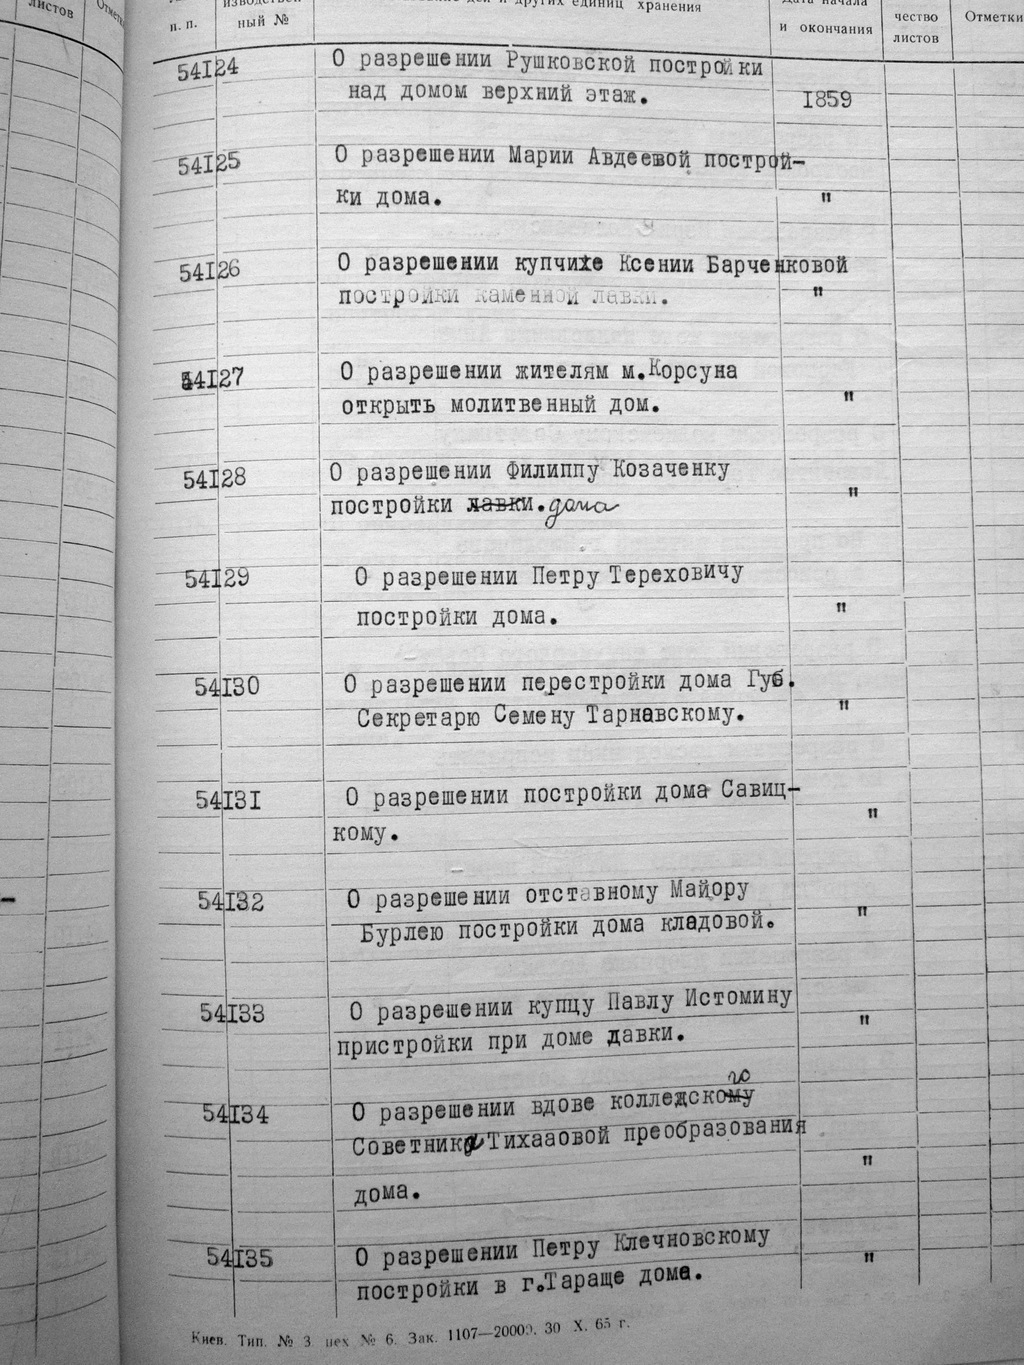 листов
н. п.
ный №
дел и других единиц хранения
Дата начала
и окончания
чество
листов
Отметки
54124
О разрешении Рушковской постройки
над домом верхний этаж.
1859
54125
О разрешении Марии Авдеевой построй-
ки дома.
"
54126
О разрешении купчихе Ксении Барченковой
постройки каменной лавки.
"
54127
О разрешении жителям м.Корсуна
открыть молитвенный дом.
"
54128
О разрешении Филиппу Козаченку
постройки лавки. дома
"
54129
О разрешении Петру Тереховичу
постройки дома.
"
54130
О разрешении перестройки дома Губ.
Секретарю Семену Тарнавскому.
"
54131
О разрешении постройки дома Савиц-
кому.
"
54132
О разрешении отставному Майору
Бурлею постройки дома кладовой.
"
54133
О разрешении купцу Павлу Истомину
пристройки при доме лавки.
"
54134
го
О разрешении вдове колледскому
Советника Тихааовой преобразования
дома.
"
54135
О разрешении Петру Клечновскому
постройки в г.Тараще дома.
"
Киев. Тип. № 3 цех № 6. Зак. 1107—20000. 30 X. 65 г.